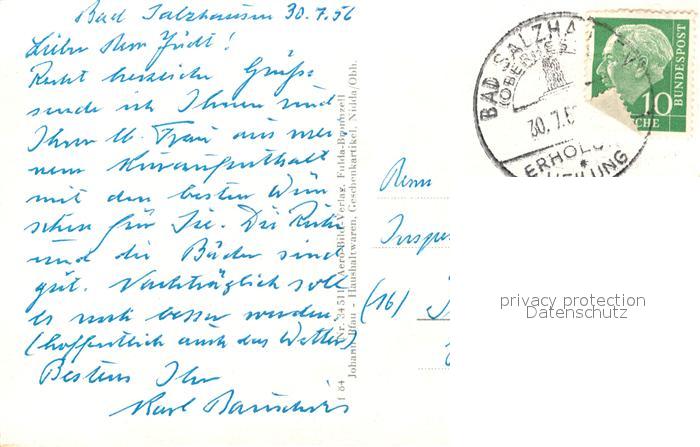 Bad Salzhausen 30.7.56
Lieber Herr Jüdt!
Recht herzliche Grüße
sende ich Ihnen und
Ihrer lb. Frau aus mei
nem Kuraufenthalt
mit den besten Wün
schen für Sie. Die Ruhe
und die Bäder sind
gut. Nachträglich soll
es noch besser werden.
(hoffentlich auch das Wetter)
Bestens Ihr
Karl
1 84 Nr. 34511 Aero-Bild-Verlag, Fulda-Bronnzell
Johanna Blau - Haushaltwaren, Geschenkartikel, Nidda/Obh.
BAD SALZHA
(OBERHES
30.7.5
ERHOLU
10
BUNDESPOST
CHE
Herrn
Inspe
(16)
privacy protection
Datenschutz